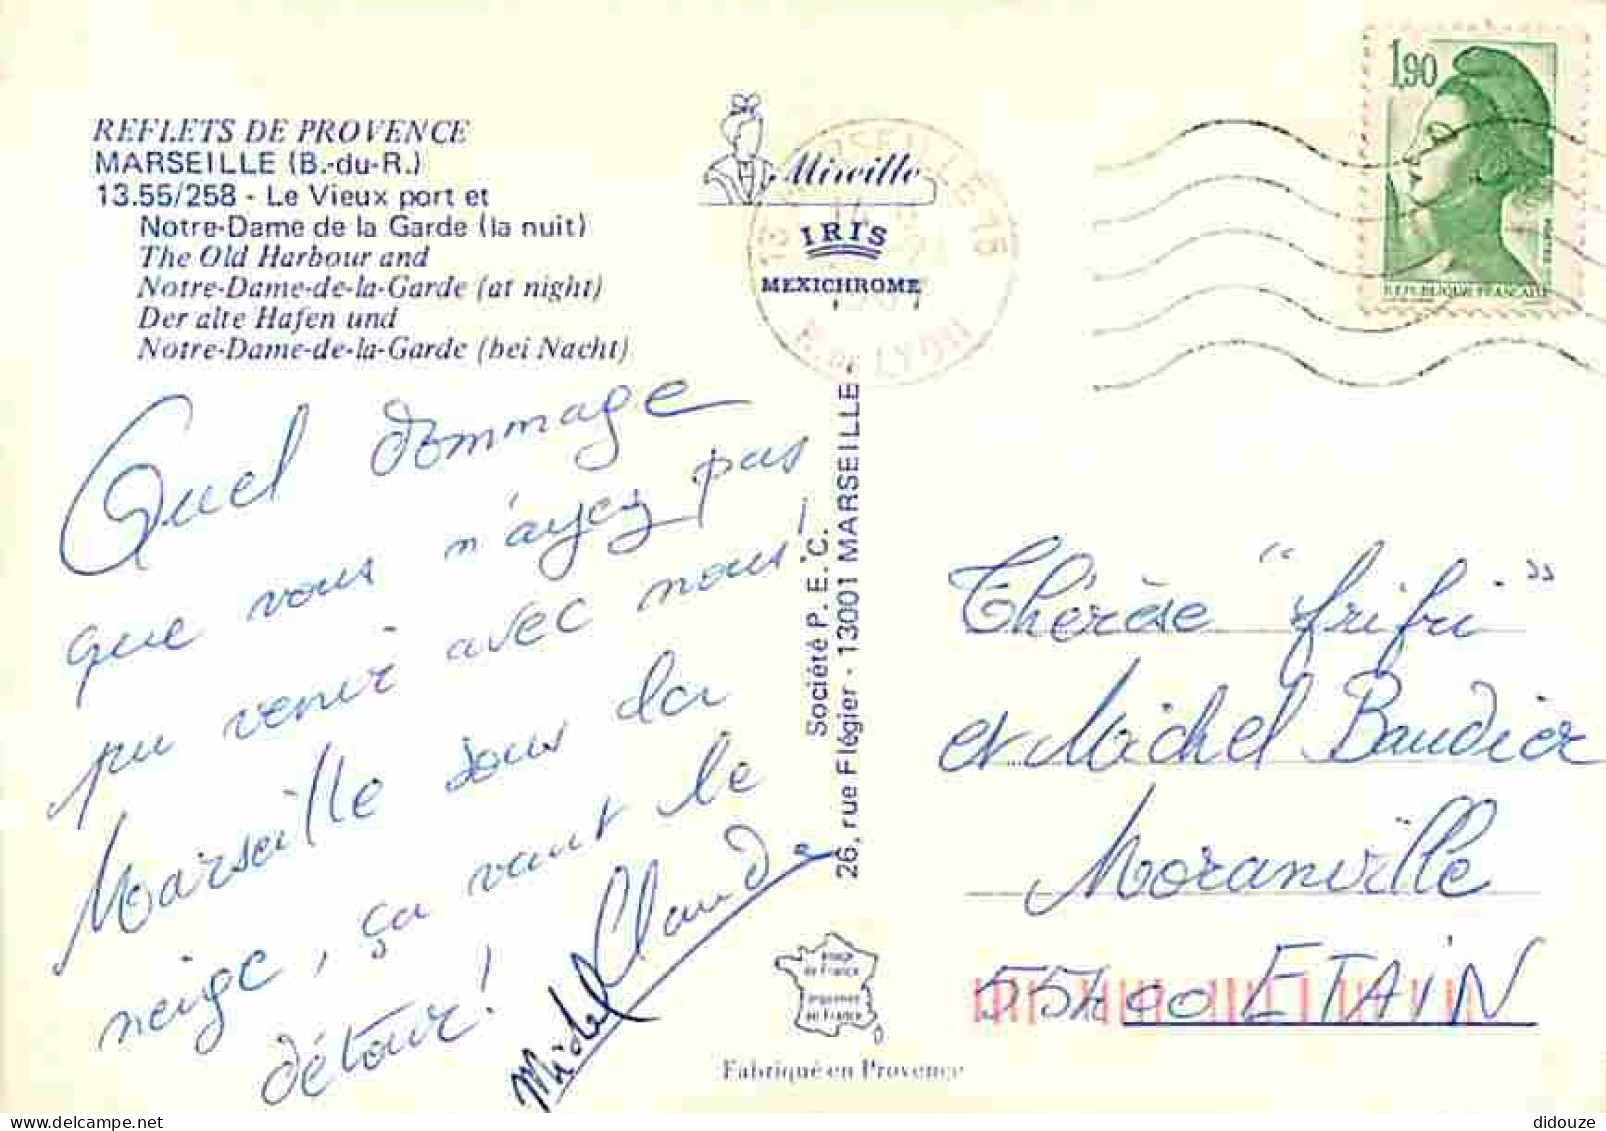 REFLETS DE PROVENCE
MARSEILLE (B.-du-R.)
13.55/258 - Le Vieux port et
Notre-Dame de la Garde (la nuit)
The Old Harbour and
Notre-Dame-de-la-Garde (at night)
Der alte Hafen und
Notre-Dame-de-la-Garde (bei Nacht)
Mireille
IRIS
MEXICHROME
MARSEILLE 15
13
14
R. DE LYON
1,90
REPUBLIQUE FRANCAISE
POSTES
Quel dommage
que vous n'ayez pas
pu venir avec nous!
Marseille sous la
neige, ça vaut le
détour!
Claude
Michel
Société P.E.C.
26, rue Flégier - 13001 MARSEILLE
Image
de France
Imprimée
en France
Fabriqué en Provence
Thérèse "frifri"
et Michel Baudier
Moranville
55400 ETAIN
didouze